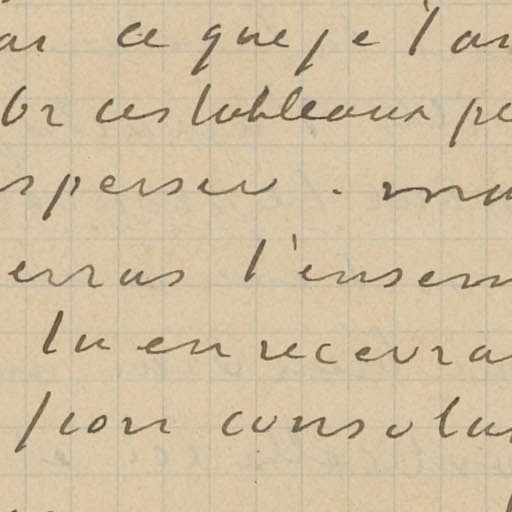 ar ce que je l'ai
br ces tableaux pe
sperser . ma
erras l'ensem
tu en recevra
sion consolan